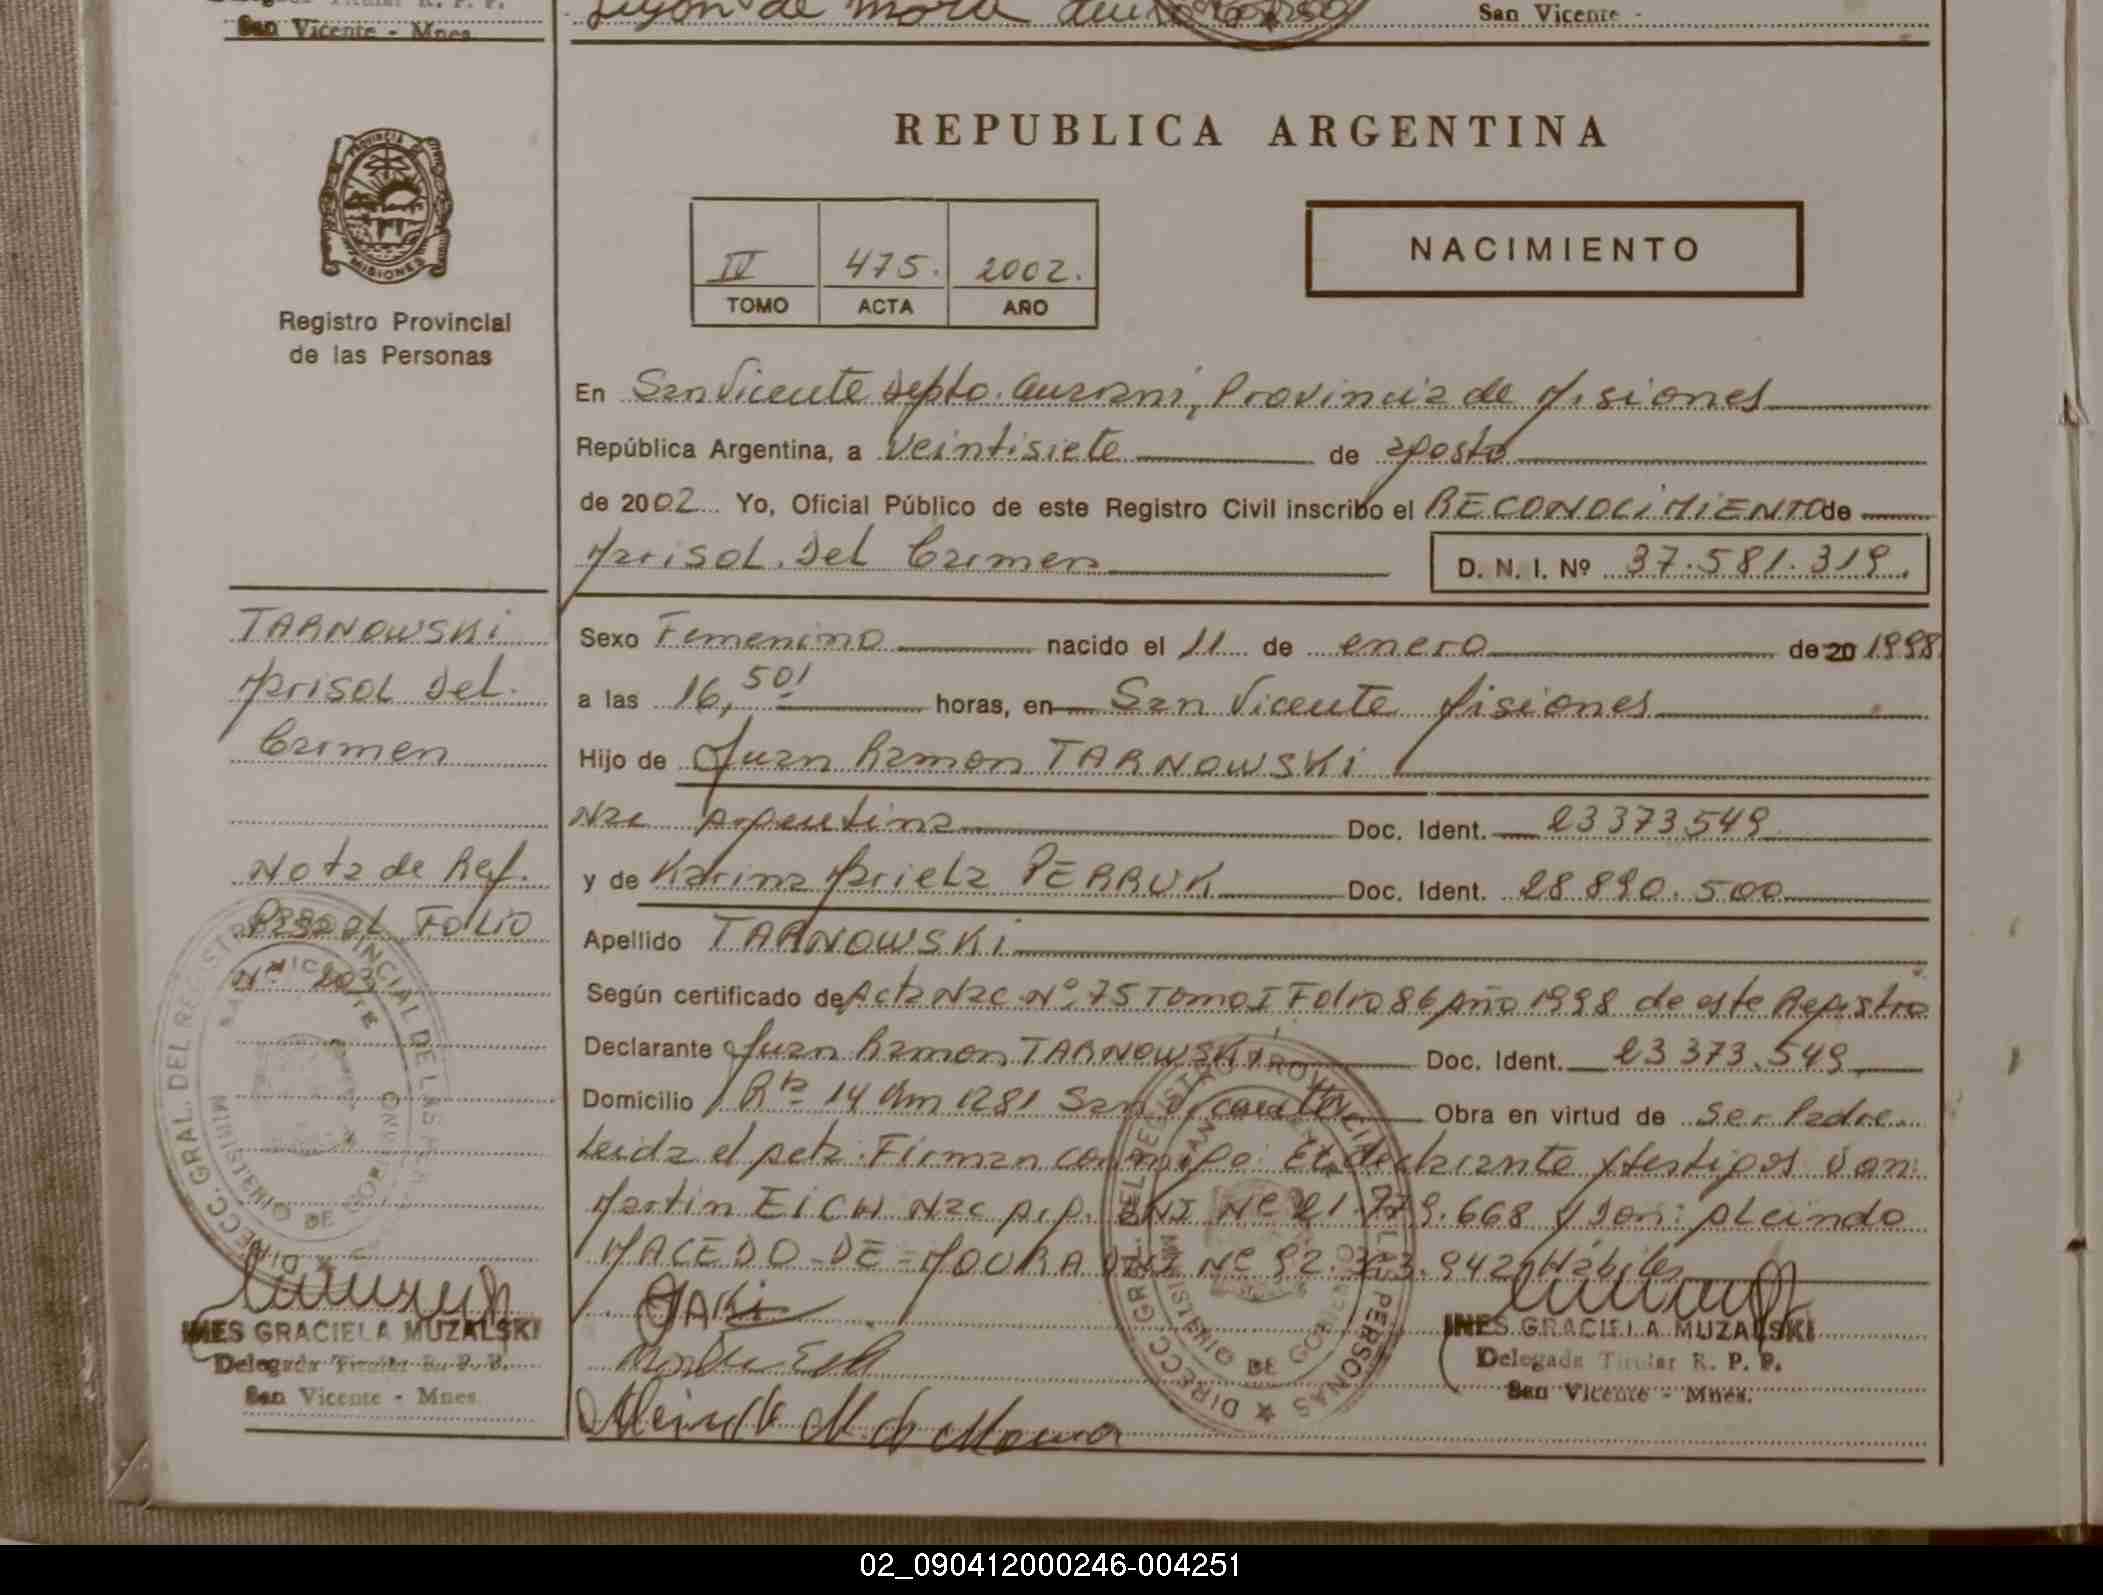 San Vicente - Mnes.
San Vicente -
PROVINCIA DE
MISIONES
Registro Provincial
de las Personas
REPUBLICA ARGENTINA
IV 475. 2002.
TOMO ACTA AÑO
NACIMIENTO
En San Vicente Depto. Guarani, Provincia de Misiones
República Argentina, a Veintisiete de agosto
de 2002 Yo, Oficial Público de este Registro Civil inscribo el RECONOCIMIENTO de
Marisol Del Carmen D. N. I. Nº 37.581.319.
Sexo Femenino nacido el 11 de enero de 20 1998
a las 16,50' horas, en San Vicente Misiones
Hijo de Juan Ramon TARNOWSKI
Nac Argentina Doc. Ident. 23 373.549
y de Karina Mariela PERRUK Doc. Ident. 28.890.500
Apellido TARNOWSKI
Según certificado de Acta Nac Nº 75 Tomo I Folio 86 Año 1998 de este Registro
Declarante Juan Ramon TARNOWSKI Doc. Ident. 23 373.549
Domicilio Rta 14 Km 1281 San Vicente Obra en virtud de Ser Padre
Leida el acta. Firman conmigo: El declarante y testigos Don:
Martin EICH Nac Arg. DNI Nº 21.779.668 y Don: Alcindo
MACEDO-DE-MOURA DNI Nº 92.323.942 Hábiles
TARNOWSKI
Marisol Del
Carmen
Nota de Ref.
FOLIO
Nº 203
INES GRACIELA MUZALSKI
Delegada Titular R. P. P.
San Vicente - Mnes.
INES GRACIELA MUZALSKI
Delegada Titular R. P. P.
San Vicente - Mnes.
DIRECC. GRAL. DEL REGISTRO PROVINCIAL DE LAS PERSONAS
MINISTERIO DE GOBIERNO
02_090412000246-004251